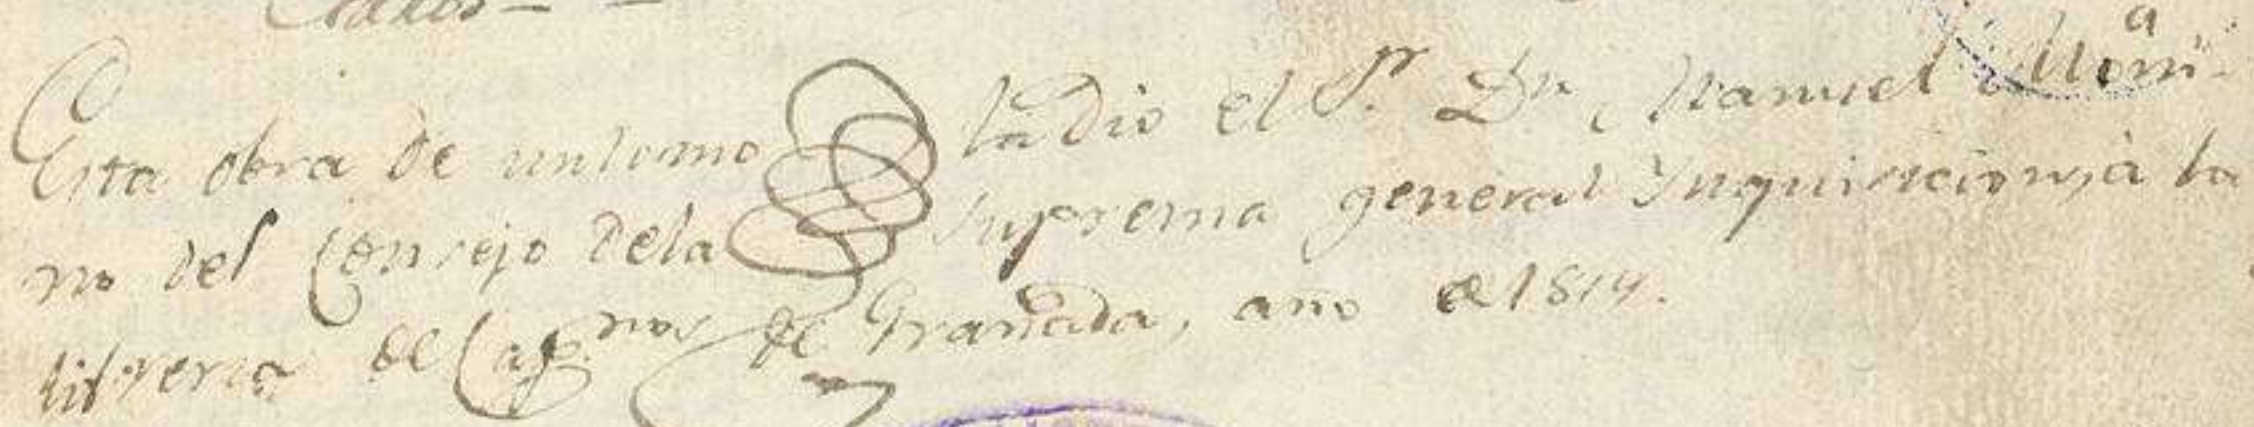 Esta obra de un tomo la dio el S.r Dn. Manuel
no del Consejo de la Suprema general Ynquisicion, à la
libreria de Cap.nos de Granada, año de 1814.